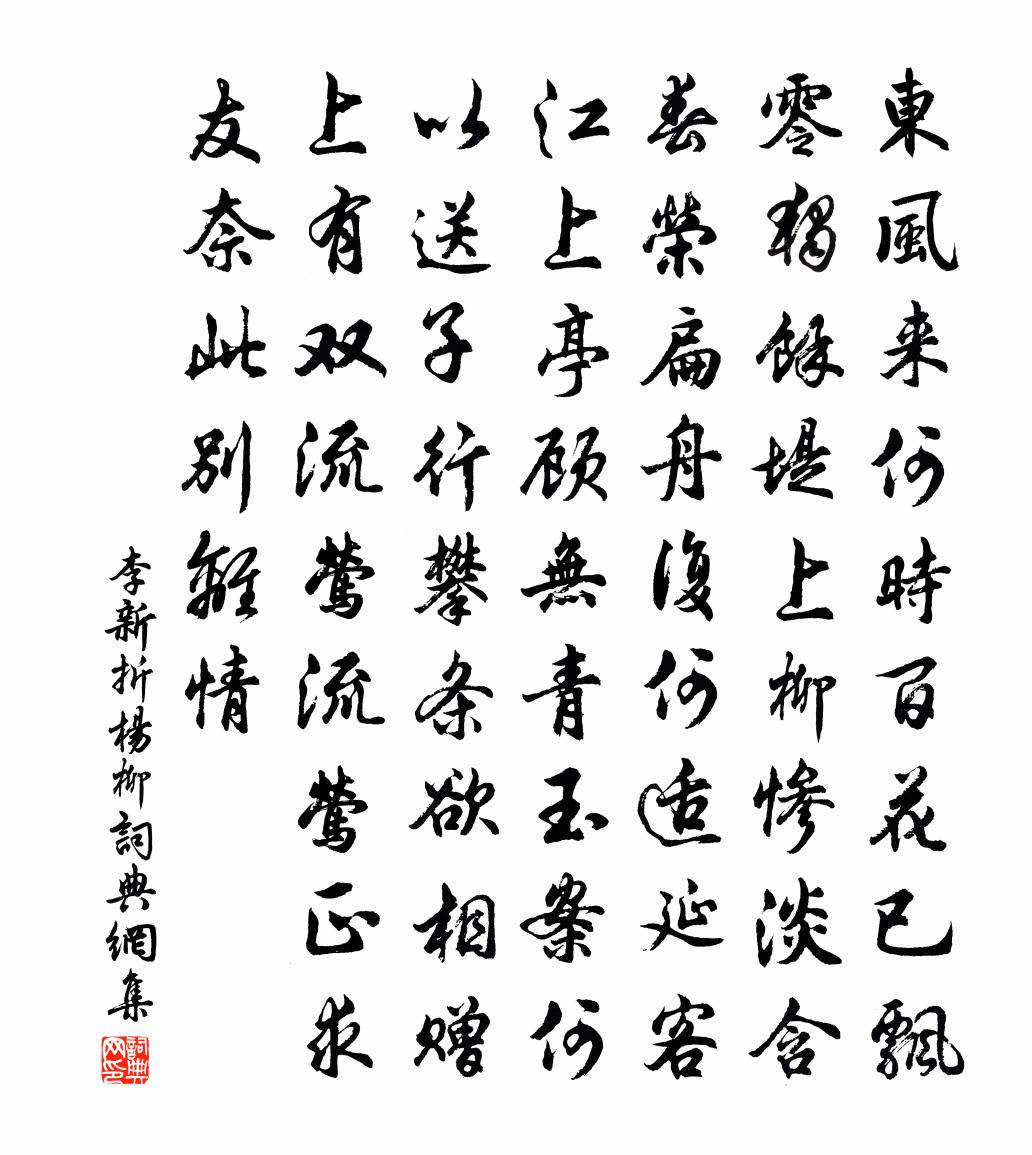 東風来何時百花已飄
零獨餘堤上柳慘淡含
春榮扁舟復何适延客
江上亭顾無青玉案何
以送子行攀条欲相赠
上有双流莺流莺正求
友奈此别離情
李新折楊柳詞典網集
詞典网印